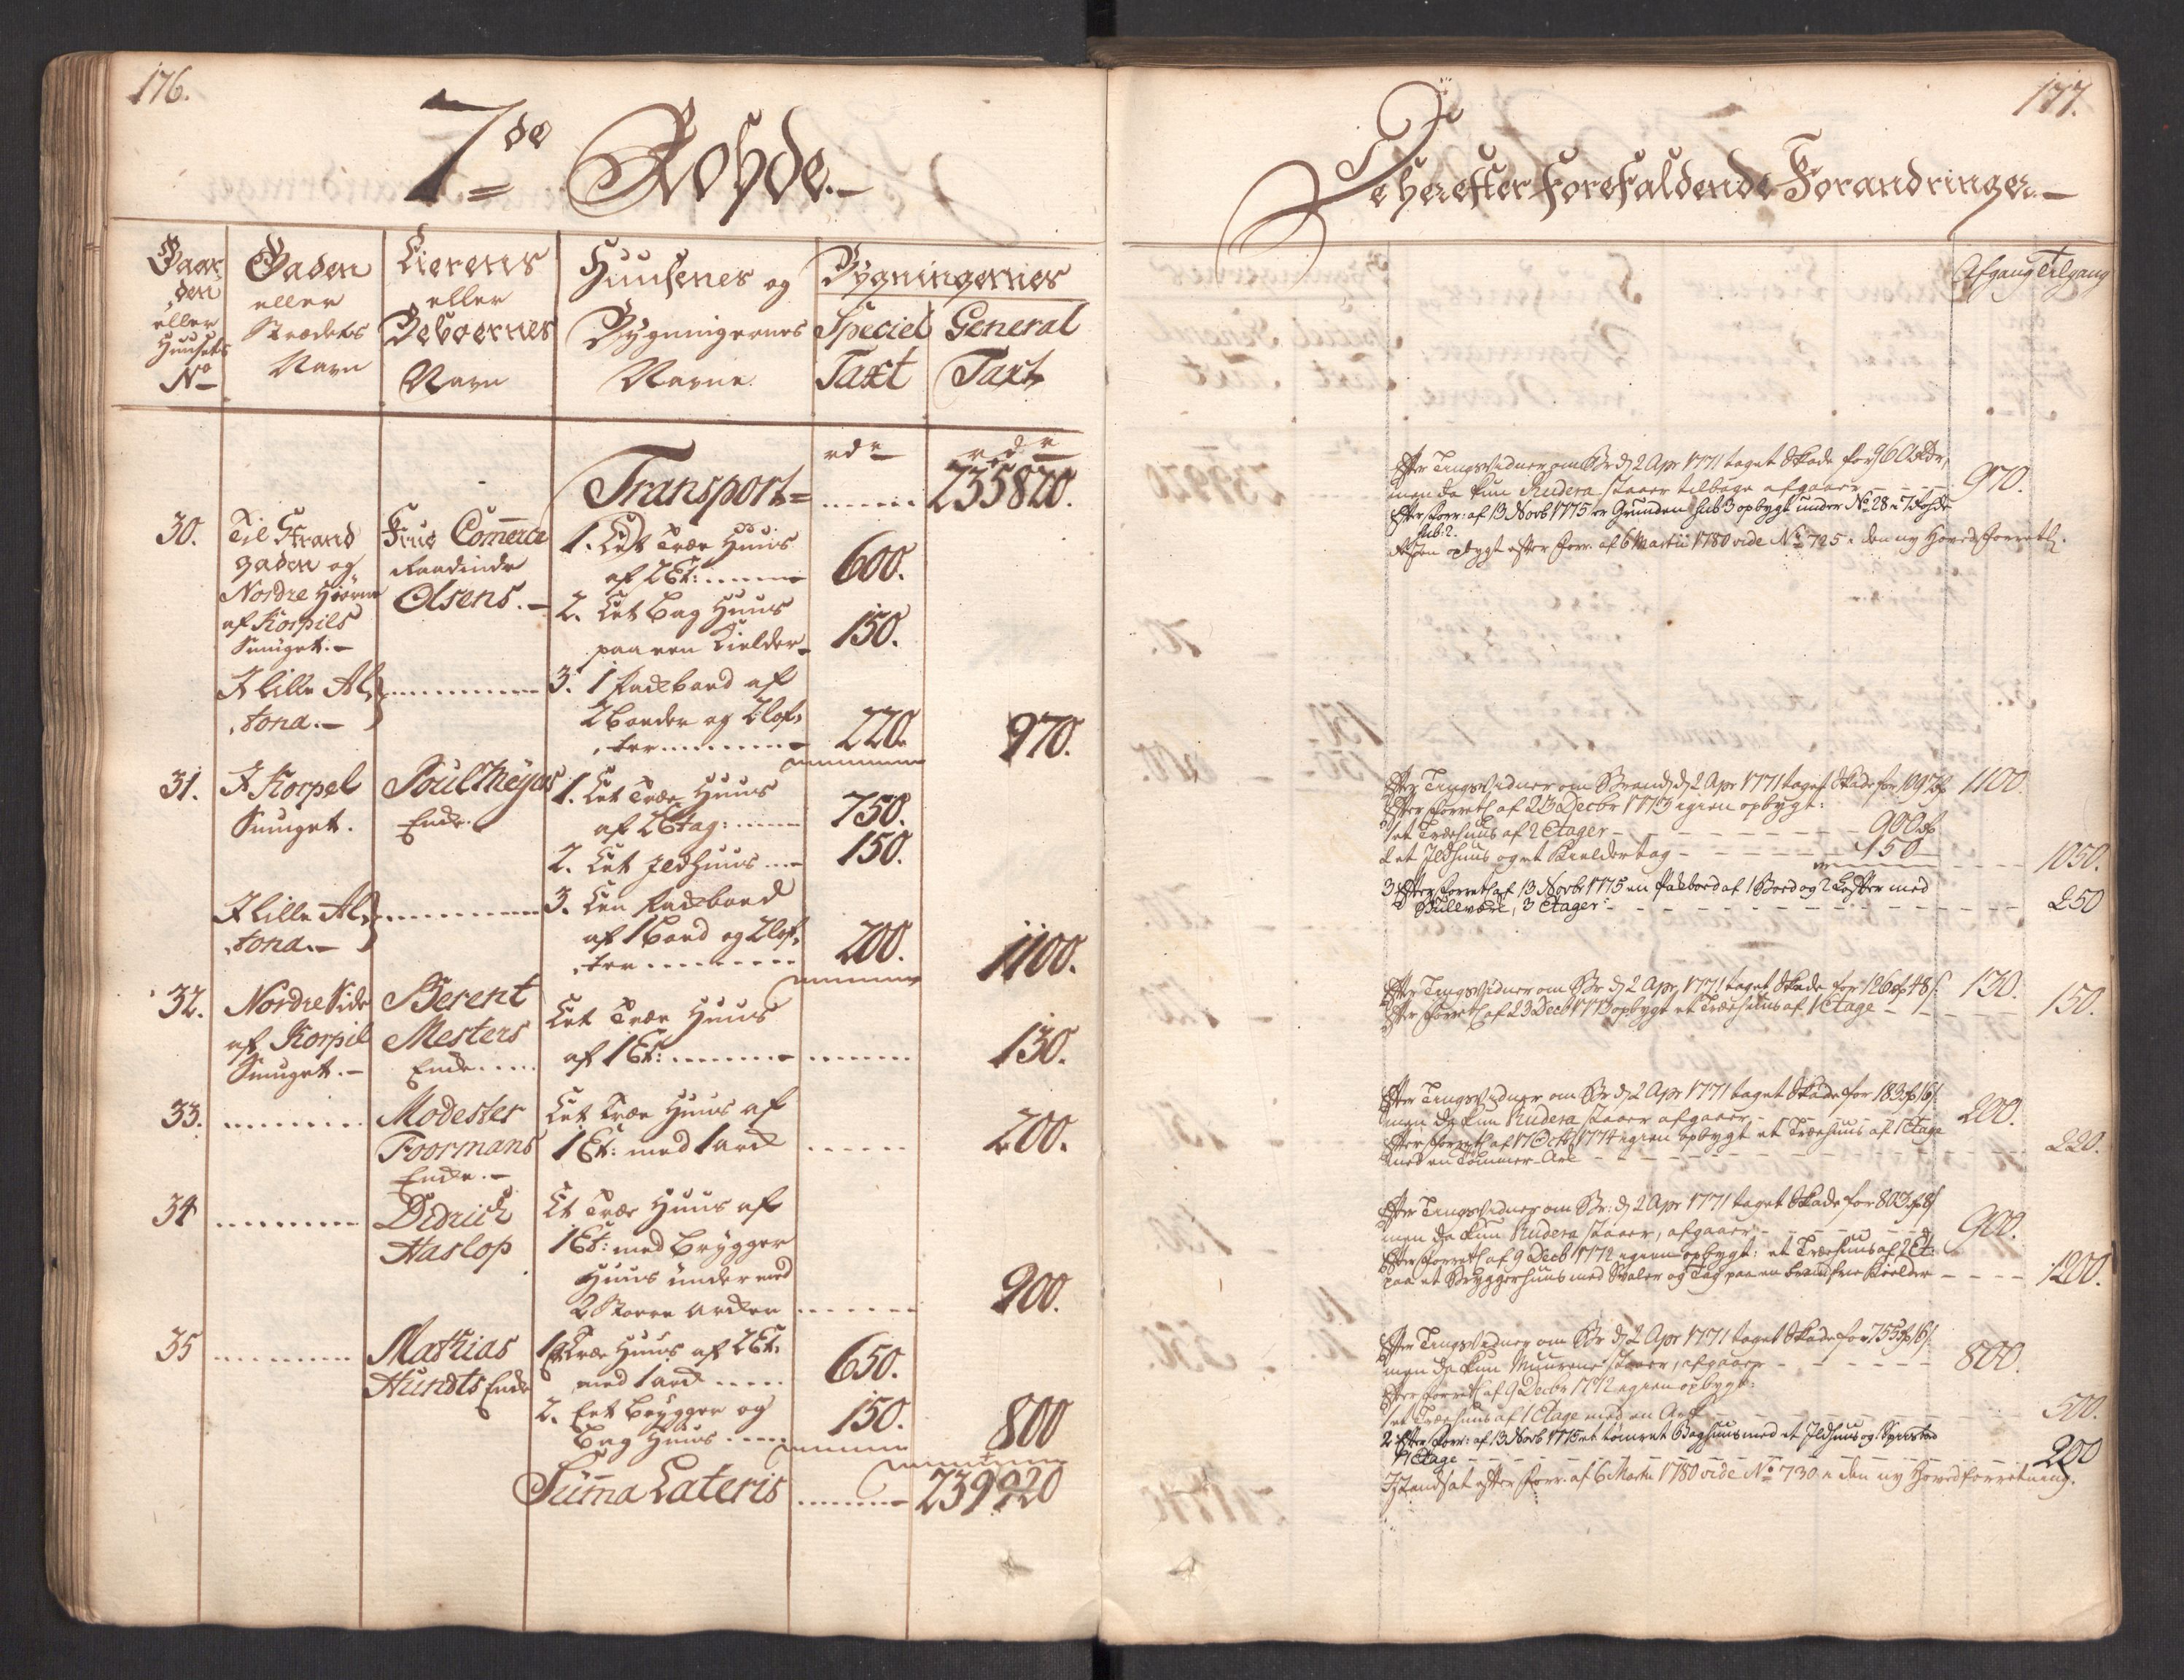 176.
7de Rohde.
Gaar-
den
eller
Huusets
No
Gaden
eller
Strædets
Navn
Eierens
eller
Beboernes
Navn
Huusenes og
Bygningernes
Navne.
Bygningernes
Speciel
Taxt
General
Taxt
rdr
rdr
Transport = ...... 235820.
30.
Til Strand
gaden og
Nordre Hiørne
af Korpils
Smuget.
Frue Com̄erce
Raadinde
Olsens.
1. Eet Træe Huus
af 2 Et: ...... 600.
2. Eet Bag Huus
paa een Kielder 150.
I lille Al-
tona.
3. 1 Pakboed af
2 Boeder og 2 lof-
ter ........ 220.
970.
31.
I Korpel
Smuget.
Poul Meyers
Enke.
1. Eet Træe Huus
af 2 Etag: ..... 750.
2. Eet Ildhuus ... 150.
I lille Al-
tona.
3. Een Pakboed
af 1 Boed og 2 lof-
ter ........ 200.
1100.
32.
Nordre Side
af Korpil
Smuget.
Berent
Mesters
Enke ....
Eet Træe Huus
af 1 Et: ............
130.
33. ........
Modester
Foormans
Enke.
Eet Træe Huus af
1 Et: med 1 ark ......
200.
34 ........
Didrich
Haslop
Et Træe Huus af
1 Et: med Brygger
Huus under med
2 Storre Arker ......
900.
35 ........
Mathias
Hundts Enke
1. Et Træe Huus af 2 Et:
med 1 ark ..... 650.
2. Eet Brygger og
Bag Huus ..... 150.
800
Sum̄a Lateris ........ 239920
177.
De herefter forefaldende Forandringer.
Afgang Tilgang
Efter Tingsvidner om Br: d. 2 Apr 1771 taget Skade for 960 Rdr,
men da kun Rudera staaer tilbage afgaaer - - - 970.
Efter Forr: af 13 Novb 1775 er Grunden sub 3 opbygt under No 28 i 7 Rohde
sub: 2.
opbygt efter Forr. af 6 Martii 1780 vide No 725 i den ny Hoved Forretn.
Efter Tingsvidner om Brand d. 2 Apr 1771 taget Skade for 1097 1100.
Efter Forretn af 23 Decbr 1773 igien opbygt:
1 et Træehuus af 2 Etager - - - 900
2 et Ildhuus og et Kieldertag - - - 150
1050.
3 Efter Forretn af 13 Novbr 1775 en Pakboed af 1 Boed og 2 Lofter med
Bullværk, 3 Etager: - - - 250
Efter Tingsvidner om Br d. 2 Apr 1771 taget Skade for 126 48 s. 130.
Efter Forretn af 23 Decb 1773 opbygt et Træehuus af 1 Etage - - - 150.
Efter Tingsvidner om Br d. 2 Apr 1771 taget Skade for 183 16 s
men da kun Rudera staaer afgaaer - - - 200.
Efter Forretn af 17 Octb 1774 igien opbygt et Træehuus af 1 Etage
med en Tømmer-Ark - - - 220.
Efter Tingsvidner om Br: d. 2 Apr 1771 taget Skade for 803 8 s
men da kun Rudera staaer, afgaaer - - - 900.
Efter Forretn af 9 Decb 1772 igien opbygt: et Træehuus af 2 Et:
paa et Bryggerhuus med Svaler og Tag paa en brandfrie Kielder - - - 1200.
Efter Tingsvidner om Br d. 2 Apr 1771 taget Skade for 755 16 s
men da kun Muurene staaer, afgaaer - - - 800.
Efter Forretn af 9 Decbr 1772 igien opbygt:
1 et Træehuus af 1 Etage med en Ark - - - 500.
2 Efter Forr: af 13 Novb 1775 et tømret Baghuus med et Ildhuus og
1 Etage - - - 200
Istandsat efter Forr. af 6 Martii 1780 vide No 730 i den ny Hovedforretning.